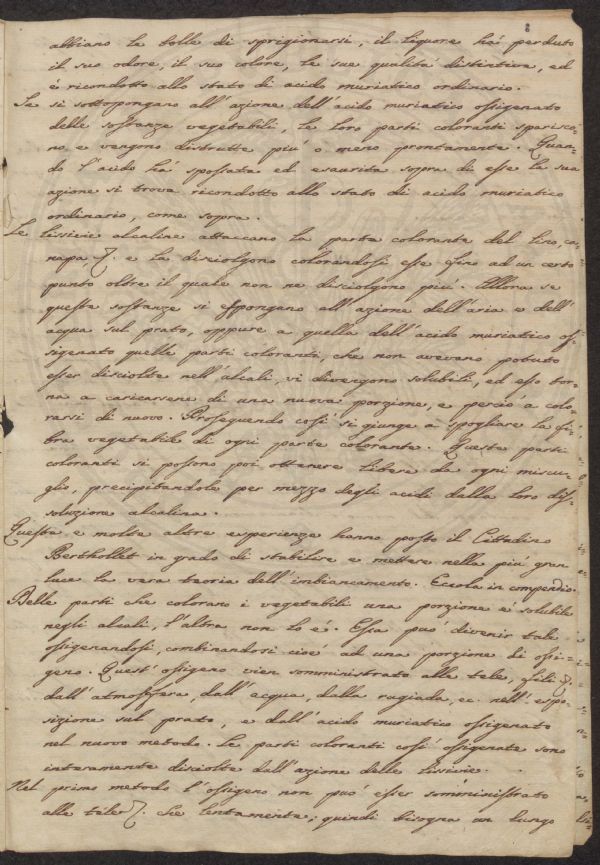 abbiano le bolle di sprigionarsi, il liquore há perduto
il suo odore, il suo colore, le sue qualitá distintive, ed
é ricondotto allo stato di acido muriatico ordinario.
Se si sottopongano all'azione dell'acido muriatico ossigenato
delle sostanze vegetabili, le loro parti coloranti sparisco-
no, e vengono distrutte piú o meno prontamente. Quan-
do l'acido há spossata ed esaurita sopra di esse la sua
azione si trova ricondotto allo stato di acido muriatico
ordinario, come sopra.
Le lissivie alcaline attaccano la parte colorante del lino, ca-
napa, &. e la disciolgono colorandosi esse sino ad un certo
punto oltre il quale non ne disciolgono piú. Allora se
queste sostanze si espongano all'azione dell'aria e dell'
acqua sul prato, oppure a quella dell'acido muriatico os-
sigenato quelle parti coloranti, che non avevano potuto
esser disciolte nell'alcali, vi divengono solubili, ed esso tor-
na a caricarsene di una nuova porzione, e perció a colo-
rarsi di nuovo. Proseguendo cosí si giunge a spogliare la fi-
bra vegetabile di ogni parte colorante. Queste parti
coloranti si possono poi ottenere libere da ogni miscu-
glio, precipitandole per mezzo degli acidi dalla loro dis-
soluzione alcalina.
Queste e molte altre esperienze hanno posto il Cittadino
Berthollet in grado di stabilire e mettere nella piú gran
luce la vera teoria dell'imbiancamento. Eccola in compendio.
Delle parti che colorano i vegetabili una porzione é solubile
negli alcali, l'altra non lo é. Essa puó divenir tale
ossigenandosi, combinandosi cioé ad una porzione di ossi-
geno. Quest'ossigeno vien somministrato alle tele, fili &.
dall'atmosfera, dall'acqua, dalla rugiada, ec. nell'espo-
sizione sul prato, e dall'acido muriatico ossigenato
nel nuovo metodo. Le parti coloranti cosí ossigenate sono
interamente disciolte dall'azione delle lissivie.
Nel primo metodo l'ossigeno non puó esser somministrato
alle tele &. che lentamente; quindi bisogna un lungo